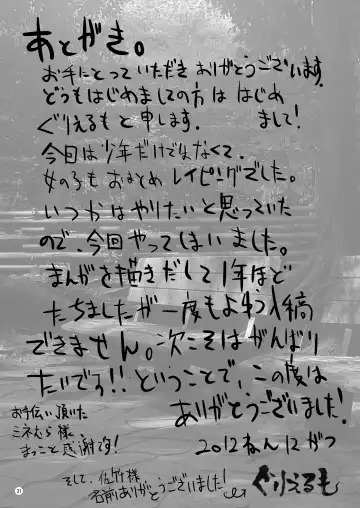 あとがき。
お手にとっていただきありがとうございます。
どうもはじめましての方は はじめまして!
ぐりえるもと申します。
今日は少年だけでなくて、
女の子もおまとめレイピングでした。
いつかはやりたいと思っていた
ので、今回やってしまいました。
まんがを描きだして1年ほど
たちましたが一度もよゆう入稿
できません。次こそはがんばり
たいです!! ということで、この度は
ありがとうございました!
お手伝い頂いた
ミネむら様、
まっこと感謝です!
2012ねん12がつ
そして、佐竹様
名前ありがとうございました!
ぐりえるも
31